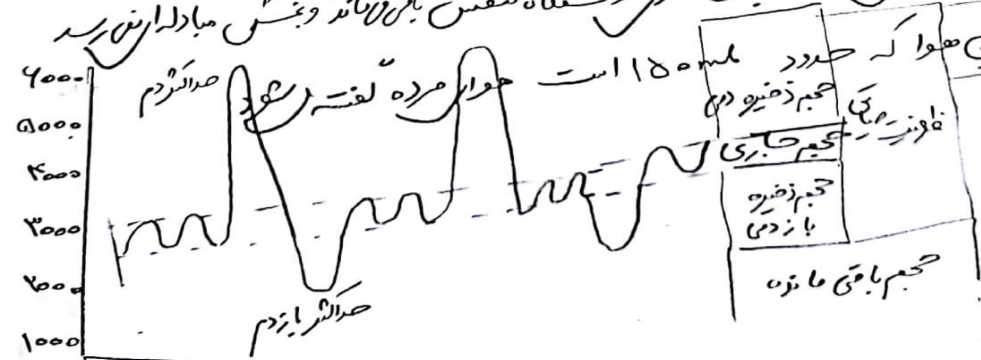 دستگاه تنفس باقی می‌ماند و بخش مبادله‌ای نمی‌رسد
هوا که حدود ۱۵۰ mL است هوای مرده گفته می‌شود
۶۰۰۰
۵۰۰۰
۴۰۰۰
۳۰۰۰
۲۰۰۰
۱۰۰۰
حداکثر دم
حداکثر بازدم
حجم ذخیره دمی
حجم جاری
حجم ذخیره
بازدمی
ظرفیت حیاتی
حجم باقی مانده